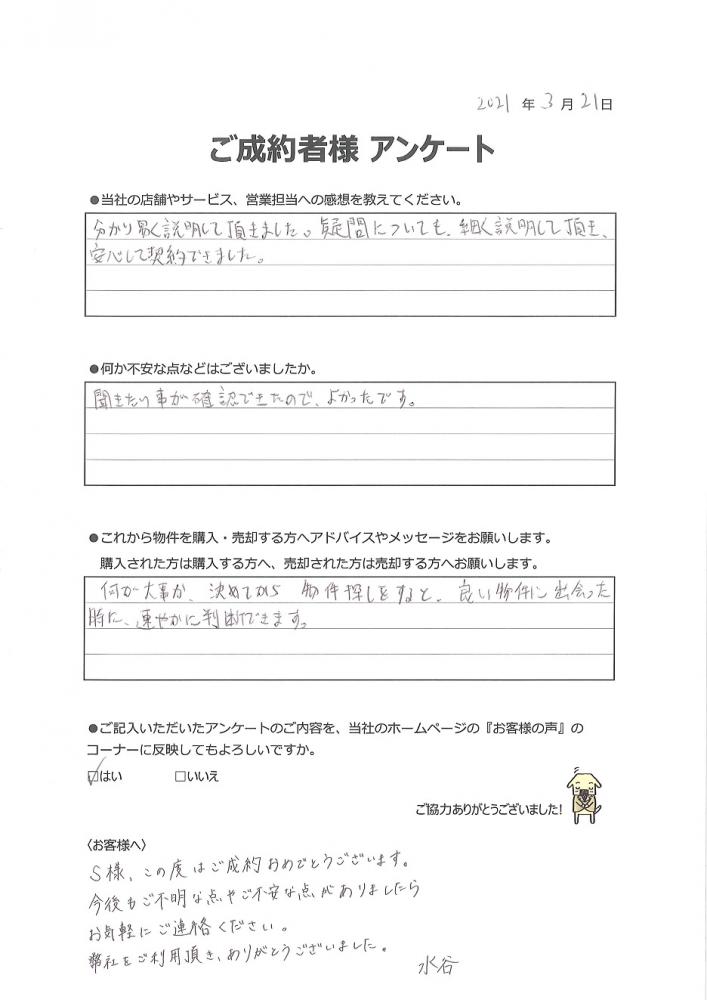 2021年3月21日
ご成約者様 アンケート
●当社の店舗やサービス、営業担当への感想を教えてください。
分かり易く説明して頂きました。疑問についても、細く説明して頂き、
安心して契約できました。
●何か不安な点などはございましたか。
聞きたい事が確認できたので、よかったです。
●これから物件を購入・売却する方へアドバイスやメッセージをお願いします。
購入された方は購入する方へ、売却された方は売却する方へお願いします。
何が大事か、決めてから 物件探しをすると、良い物件に出会った
時に、速やかに判断できます。
●ご記入いただいたアンケートのご内容を、当社のホームページの『お客様の声』の
コーナーに反映してもよろしいですか。
☑はい □いいえ
ご協力ありがとうございました!
〈お客様へ〉
S様、この度はご成約おめでとうございます。
今後もご不明な点やご不安な点がありましたら
お気軽にご連絡ください。
弊社をご利用頂き、ありがとうございました。
水谷